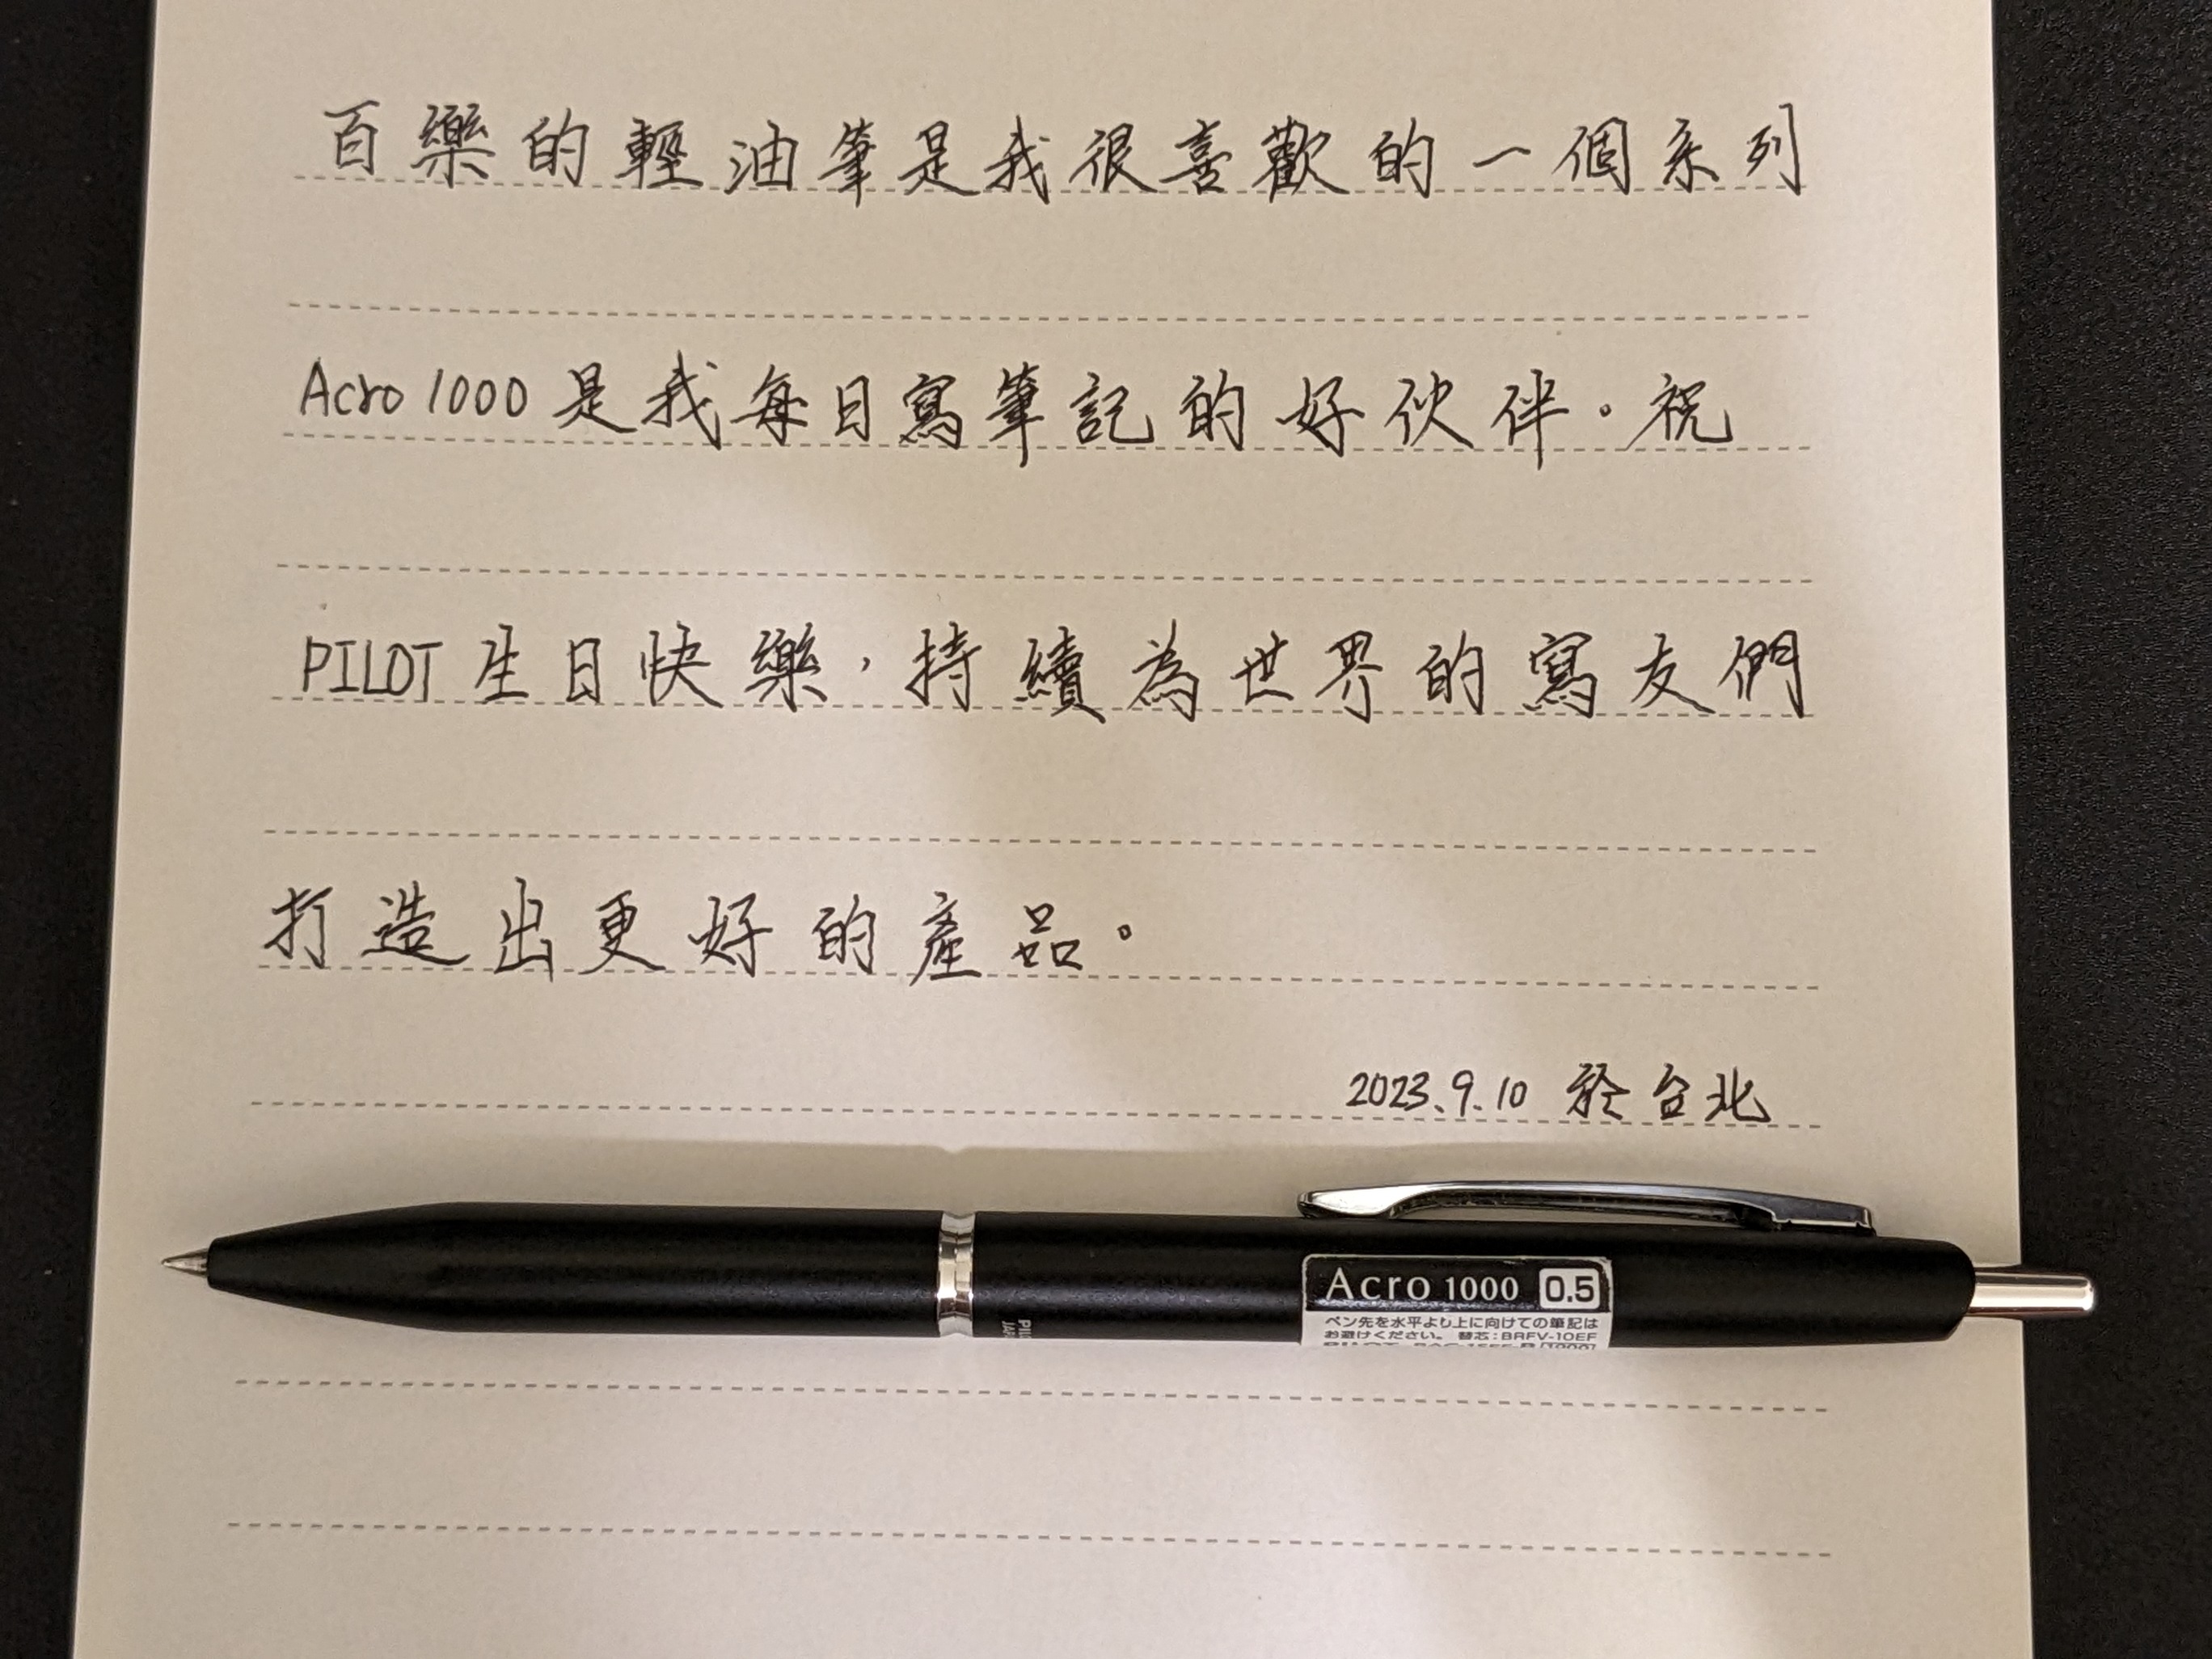 百樂的輕油筆是我很喜歡的一個系列
Acro 1000 是我每日寫筆記的好伙伴。祝
PILOT 生日快樂，持續為世界的寫友們
打造出更好的產品。
2023.9.10 於台北
Acro 1000 0.5
ペン先を水平より上に向けての筆記は
お避けください。 替芯：BRFV-10EF